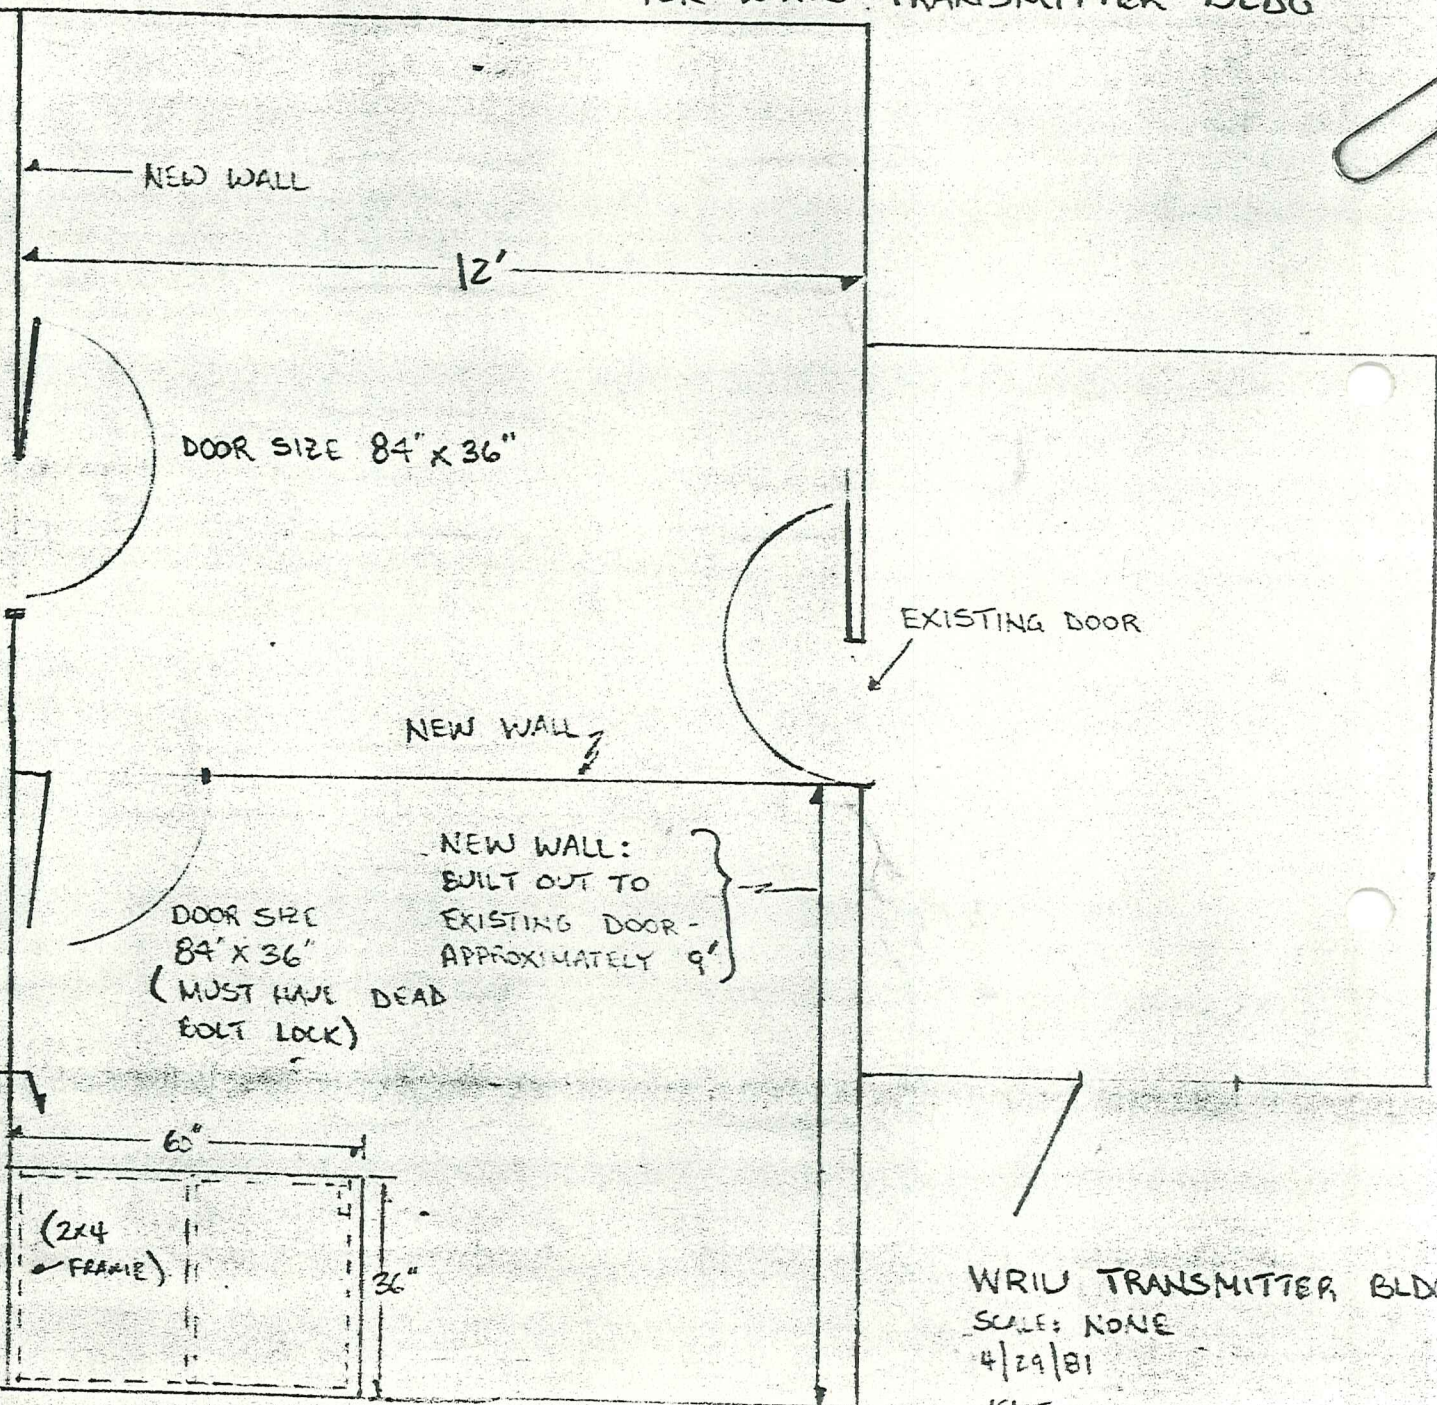 FOR WRIU TRANSMITTER BLDG
NEW WALL
12'
DOOR SIZE 84" x 36"
EXISTING DOOR
NEW WALL
NEW WALL:
BUILT OUT TO
EXISTING DOOR -
APPROXIMATELY 9'
DOOR SIZE
84" X 36"
(MUST HAVE DEAD
BOLT LOCK)
60"
(2x4
FRAME)
36"
WRIU TRANSMITTER BLDG
SCALE: NONE
4/29/81